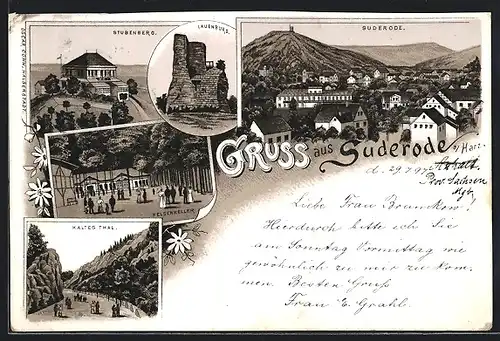 STUBENBERG.
LAUENBURG.
SUDERODE.
FELSENKELLER.
KALTES THAL.
GRUSS aus Suderode a/Harz.
d. 29.7.97
Anhalt
Prov. Sachsen
Liebe Frau Braunkow!
Hierdurch bitte ich Sie
am Sonntag Vormittag wie
gewöhnlich zu mir zu kom-
men. Besten Gruß
Frau E. Grahl.